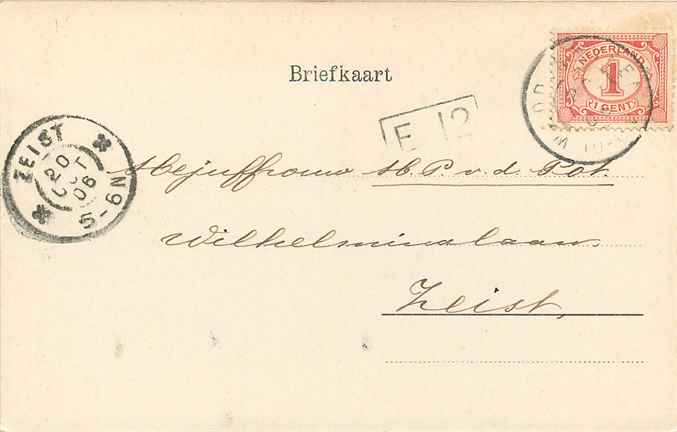 Briefkaart
NEDERLAND
1
CENT
E 12
ZEIST
20
OCT
06
5-6N
Mejuffrouw M. P. v. d. Pot.
Wilhelminalaan.
Zeist,